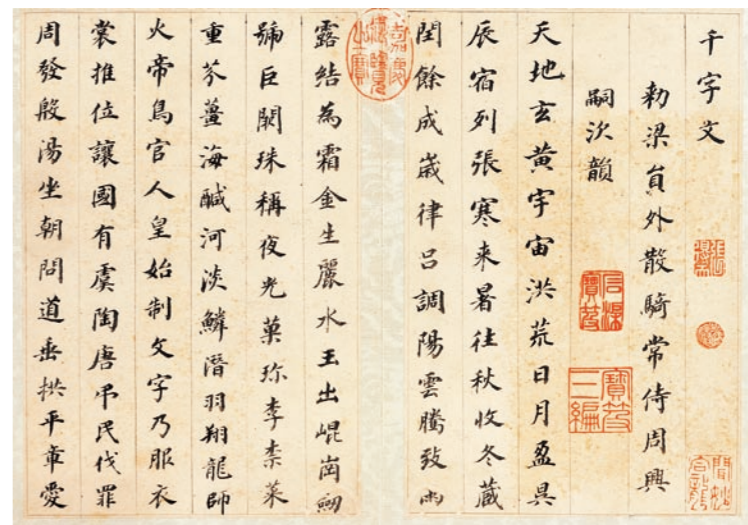 千字文
勅梁員外散騎常侍周興
嗣次韻
天地玄黃宇宙洪荒日月盈昃
辰宿列張寒来暑往秋收冬藏
閏餘成歲律呂調陽雲騰致雨
露結為霜金生麗水玉出崐崗劒
號巨闕珠稱夜光菓珎李柰菜
重芥薑海鹹河淡鱗潛羽翔龍師
火帝鳥官人皇始制文字乃服衣
裳推位讓國有虞陶唐弔民伐罪
周發殷湯坐朝問道垂拱平章愛
石渠寶笈
寶笈三編
嘉慶御覽之寶